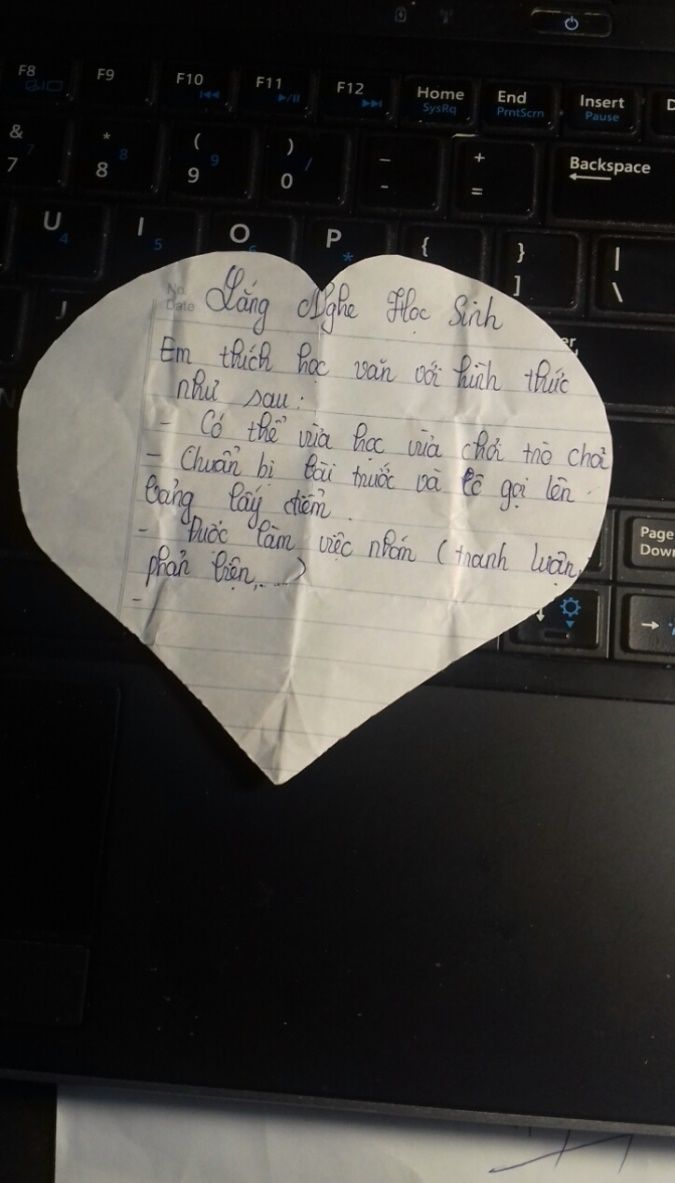 F8 F9 F10 F11 F12 Home End Insert D
SysRq PrntScrn Pause
& 7 7 * 8 8 ( 9 9 ) 0 / _ - + = Backspace
U 4 I 5 O 6 P * { [ } ] | \
J
No.
Date
Lắng Nghe Học Sinh
Em thích học văn với hình thức
như sau:
- Có thể vừa học vừa chơi trò chơi
- Chuẩn bị bài trước và cô gọi lên
bảng lấy điểm.
- Được làm việc nhóm (tranh luận,
phản biện,...)
-
Page
Down